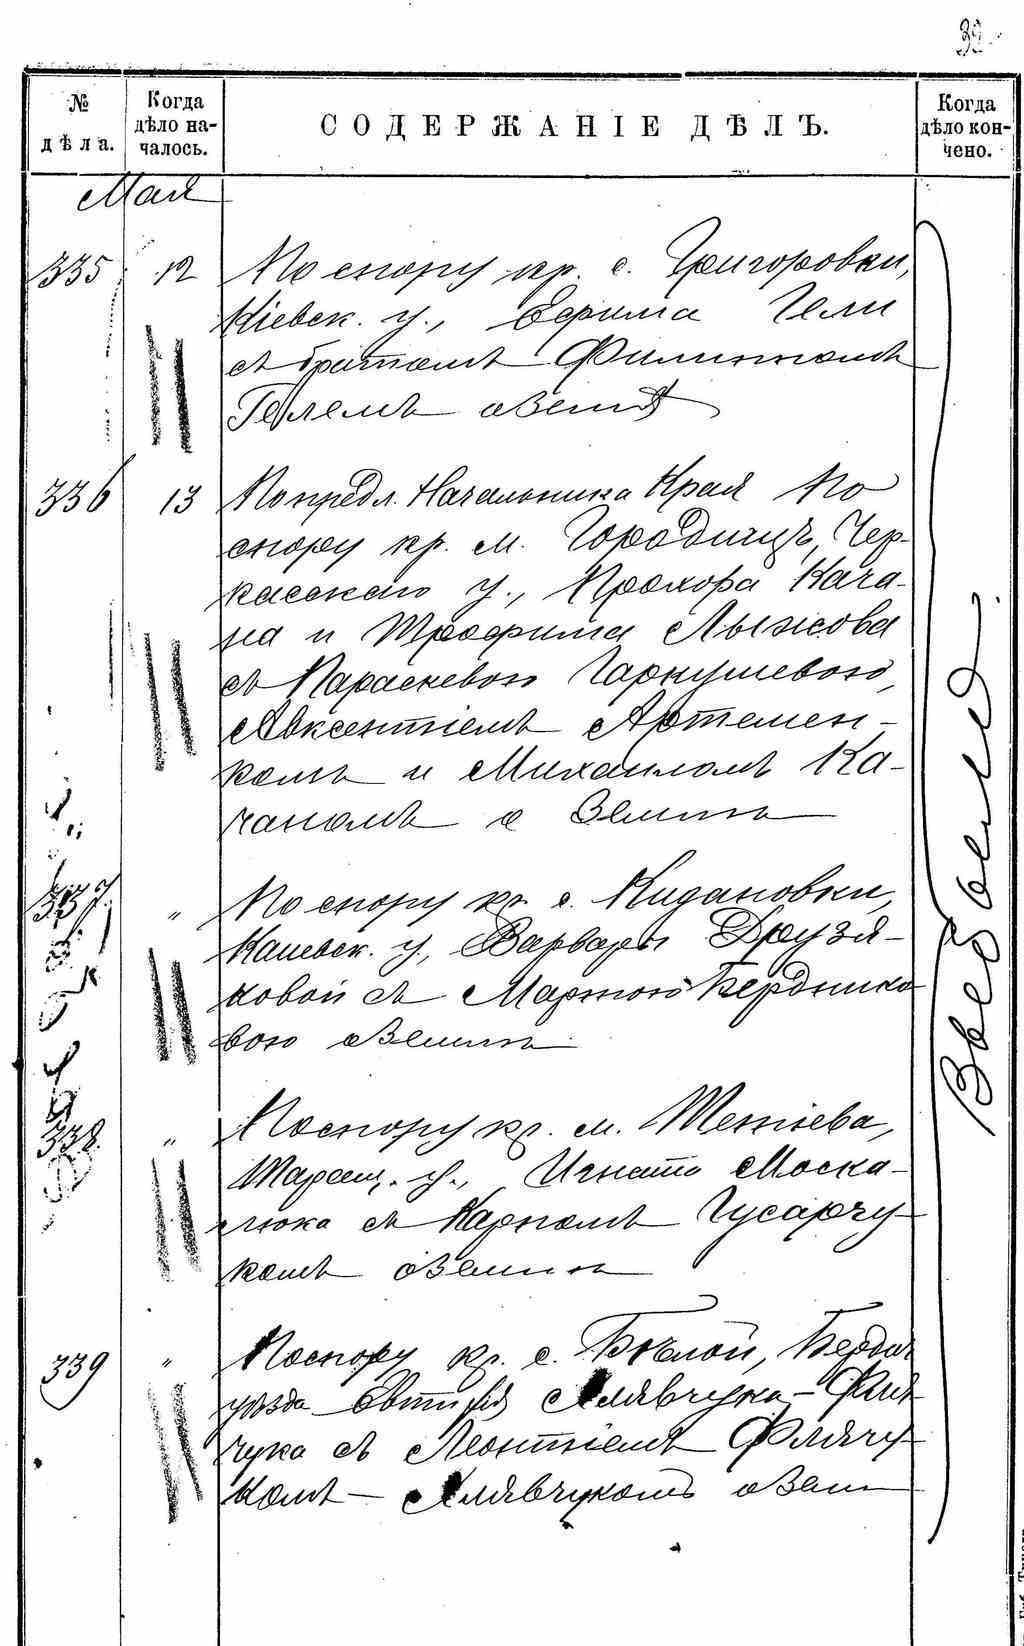 32
№ дѣла.
Когда дѣло началось.
СОДЕРЖАНІЕ ДѢЛЪ.
Когда дѣло кончено.
Мая
335 12 По спору кр. с. Григоровки,
Кіевск. у., Ефима Гели
съ братомъ Филиппомъ
Гелемъ о земл
336 13 По предл. Начальника Края По
спору кр. м. Городищъ, Чер-
касскаго у., Прохора Кача-
на и Трофима Лыжова
съ Параскевою Гаркушевою,
Авксентіемъ Артемен-
комъ и Михаиломъ Ка-
чаномъ о земли
337. " По спору кр. с. Кидановки,
Каневск. у., Варвары Друзя-
ковой съ Марѳою Бердника
вою о земли
338. " По спору кр. м. Тетіева,
Таращ. у., Игната Моска-
люка съ Карпомъ Гусарчу-
комъ о земли
339 " По спору кр. с. Бѣлой, Бердич
уѣзда Евтифія Хлявчука-Фля
чука съ Леонтіемъ Флячу
комъ - Хлявчукомъ о зем